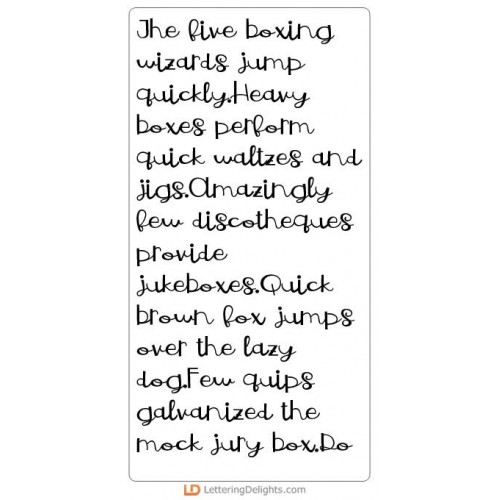 The five boxing
wizards jump
quickly.Heavy
boxes perform
quick waltzes and
jigs.Amazingly
few discotheques
provide
jukeboxes.Quick
brown fox jumps
over the lazy
dog.Few quips
galvanized the
mock jury box.Do
LD LetteringDelights.com